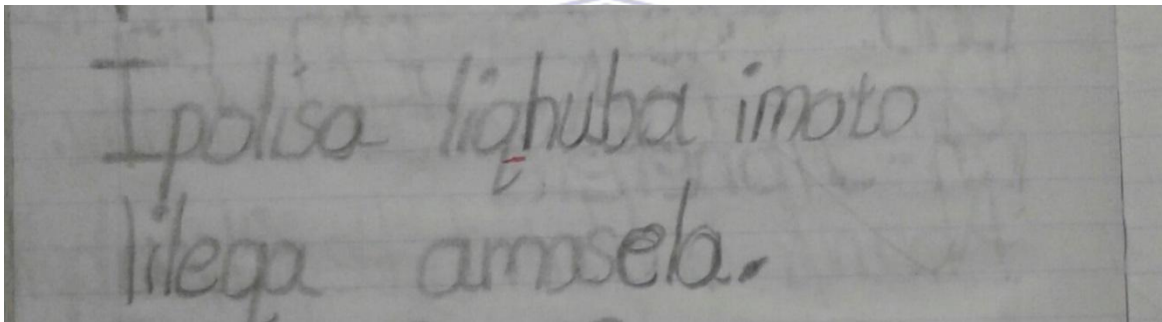 Ipolisa liqhuba imoto
lilega amasela.